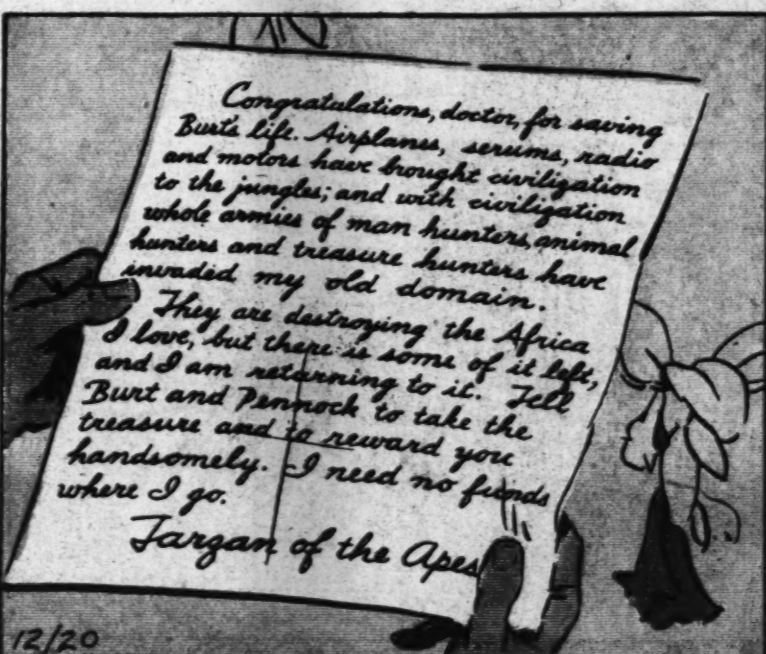 Congratulations, doctor, for saving
Burt's life. Airplanes, serums, radio
and motors have brought civilization
to the jungles; and with civilization
whole armies of man hunters, animal
hunters and treasure hunters have
invaded my old domain.
They are destroying the Africa
I love, but there is some of it left,
and I am returning to it. Tell
Burt and Pennock to take the
treasure and to reward you
handsomely. I need no funds
where I go.
Tarzan of the Apes
12/20